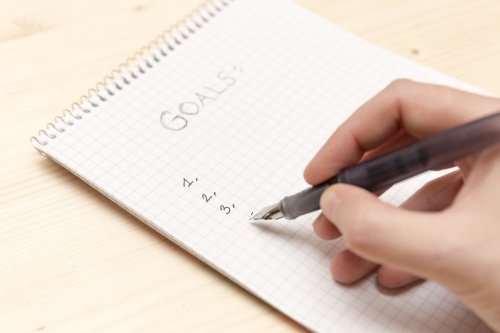 GOALS:
1.
2.
3.